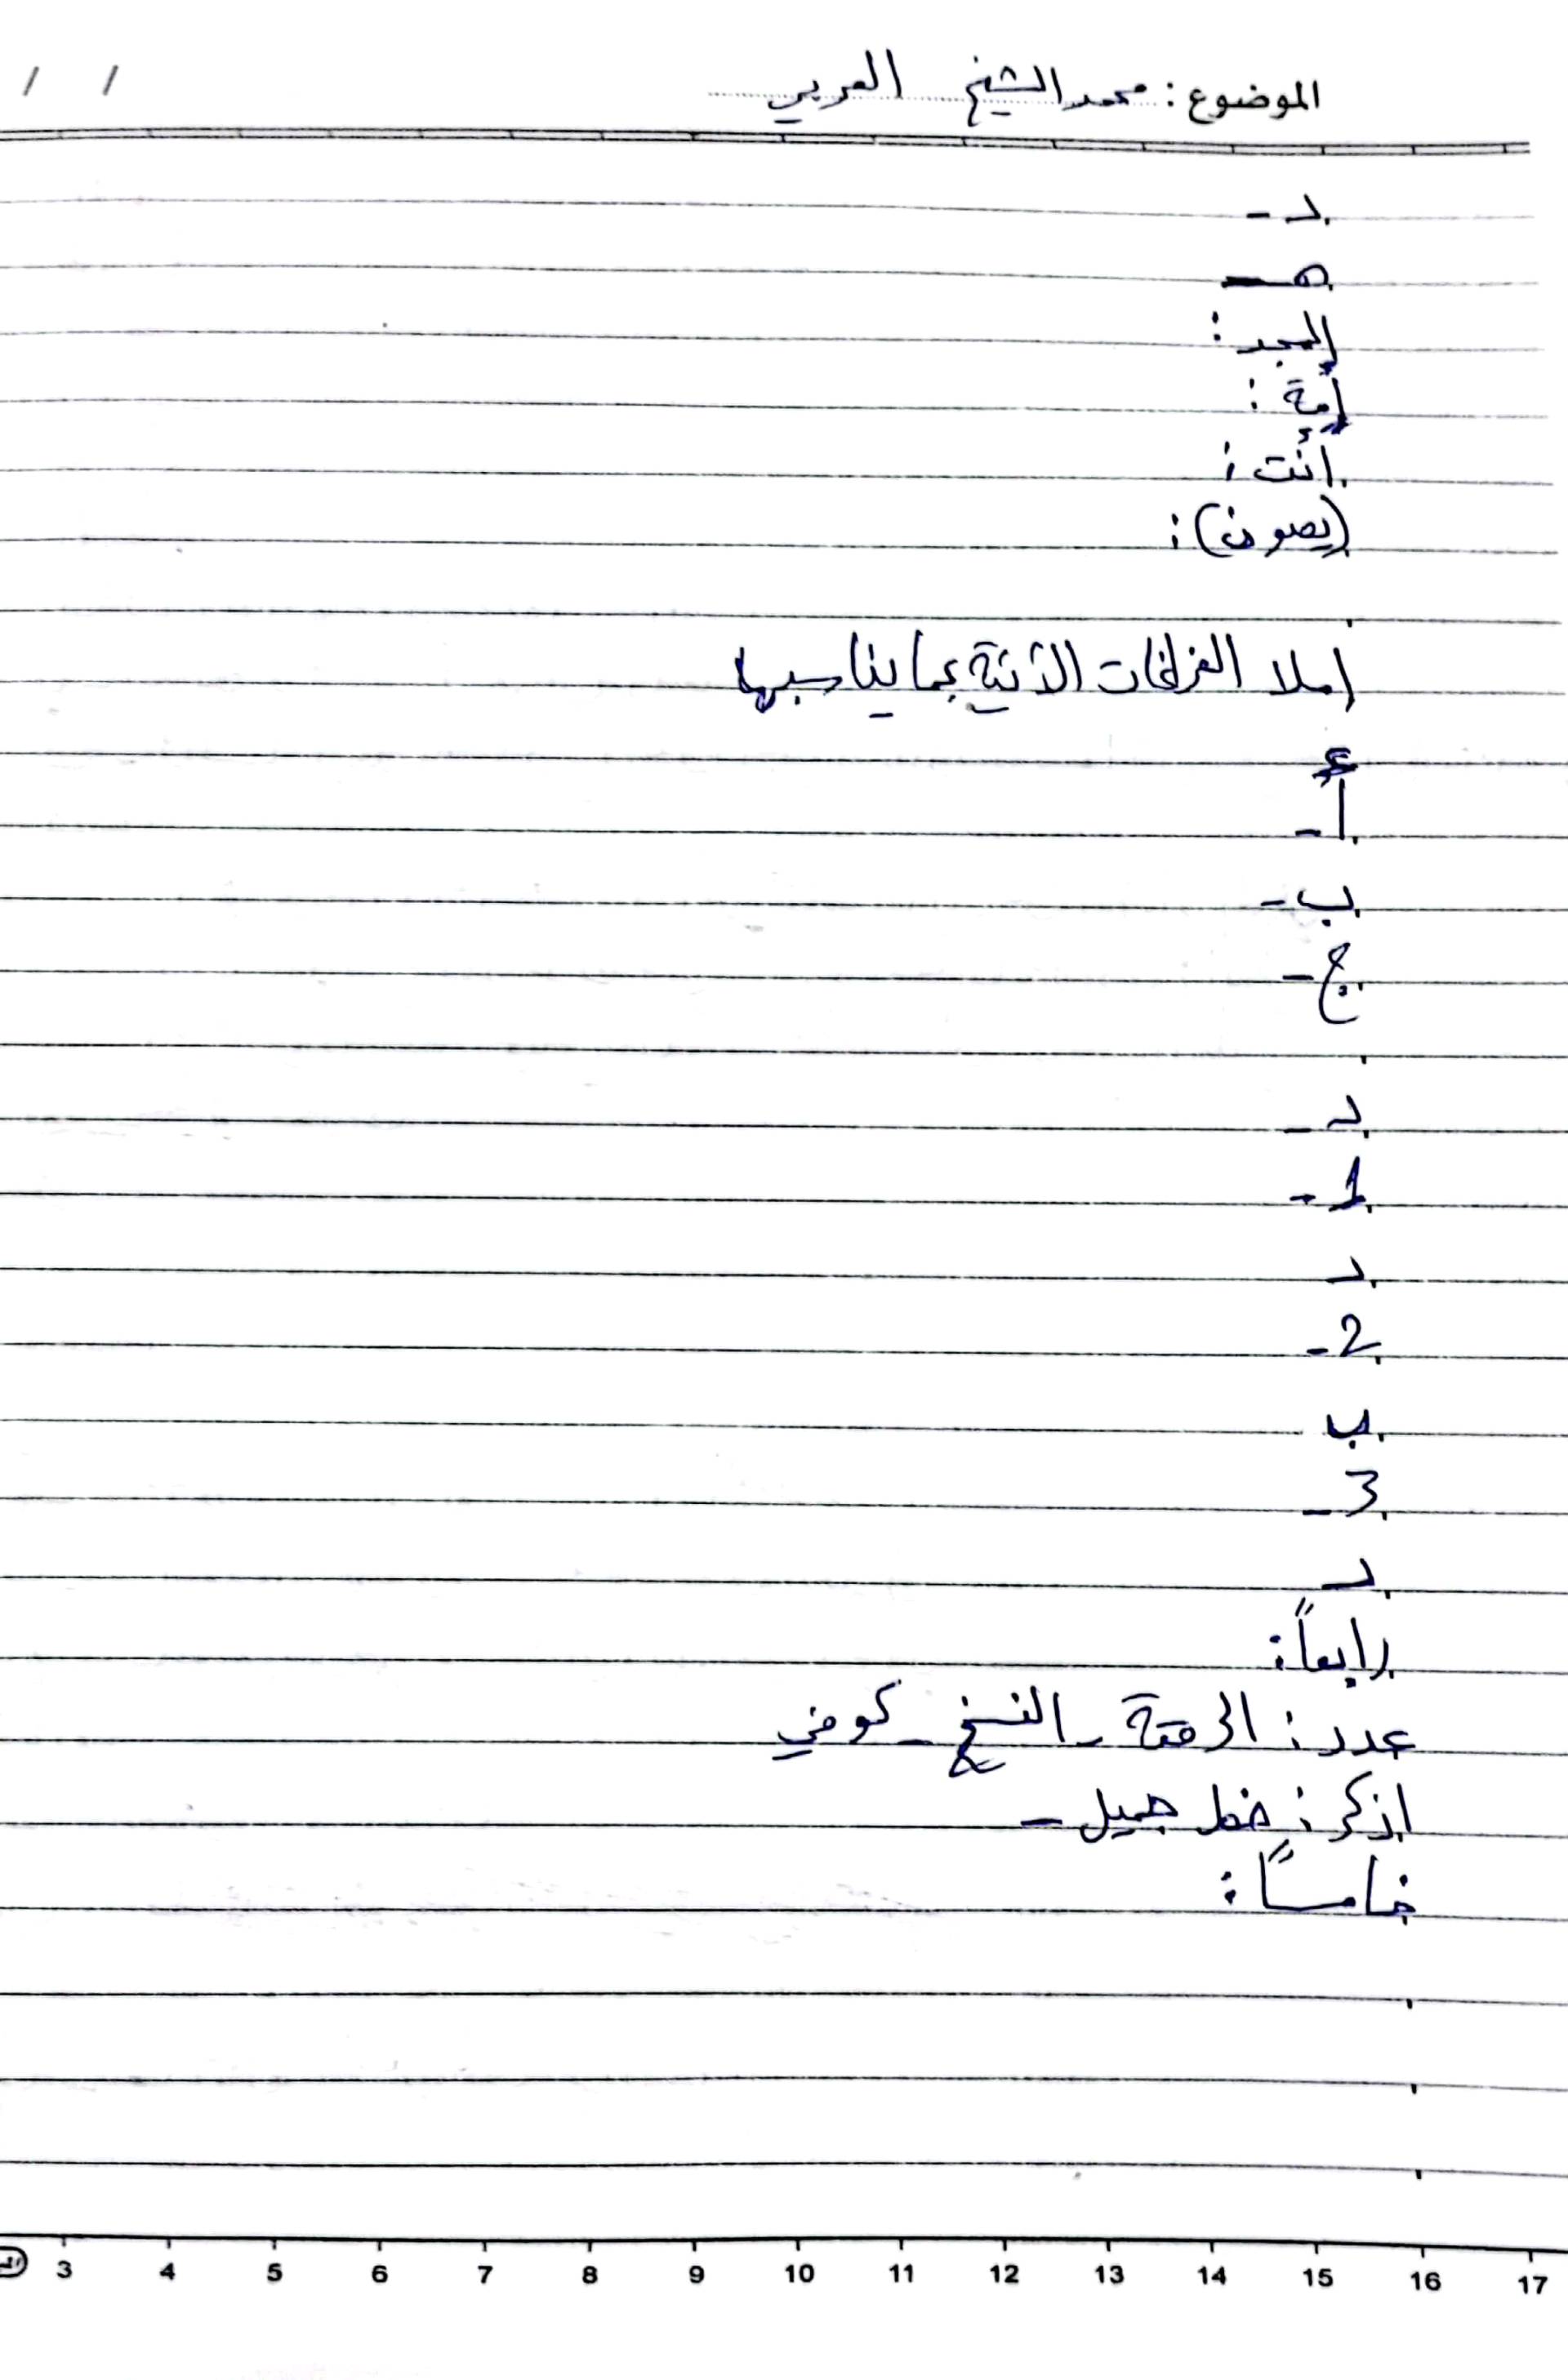 الموضوع : محمد الشيخ العربي / /
د -
هـ
المجد :
أمة :
أنت :
(يصون) :
املا الفراغات الآتية بما يناسبها
أ -
ب -
ج -
د -
1 -
د
2 -
ب
3 -
د
رابعاً :
عدد : الرقعة - النسخ - كوفي
اذكر : خط جميل -
خامساً :
3 4 5 6 7 8 9 10 11 12 13 14 15 16 17